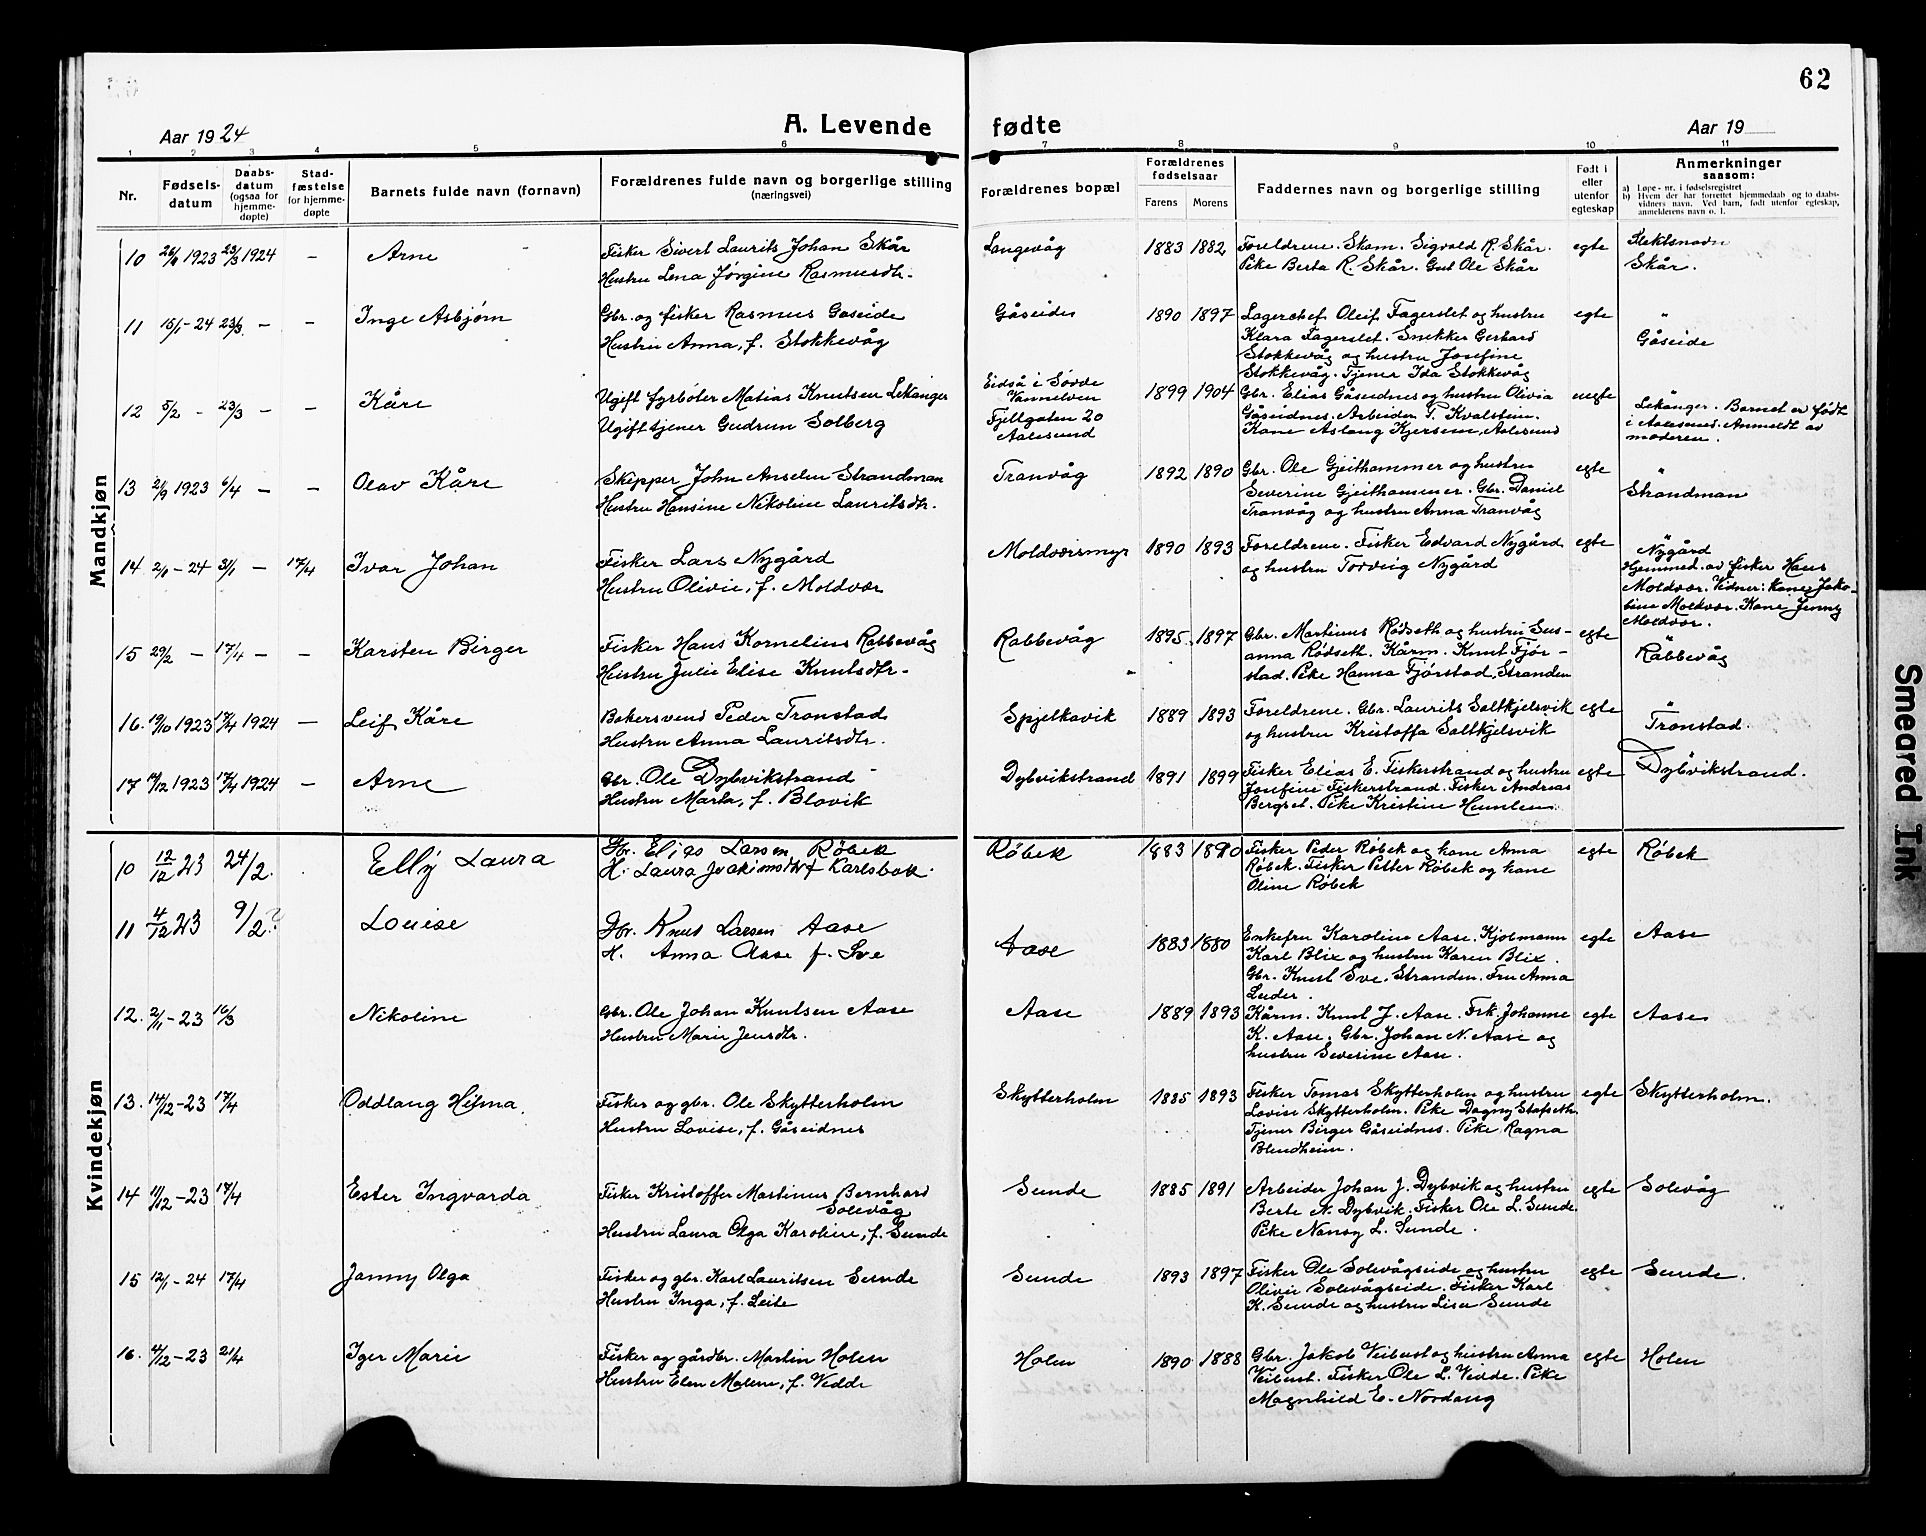 62
Aar 1924 A. Levende fødte Aar 19
1 2 3 4 5 6 7 8 9 10 11
Nr. Fødsels-datum Daabs-datum (ogsaa for hjemme-døpte) Stad-fæstelse for hjemme-døpte Barnets fulde navn (fornavn) Forældrenes fulde navn og borgerlige stilling (næringsvei) Forældrenes bopæl Forældrenes fødselsaar Farens Morens Faddernes navn og borgerlige stilling Født i eller utenfor egteskap Anmerkninger saasom:
a) Løpe-nr. i fødselsregistret
b) Hvem der har forrettet hjemmedaab og to daabs-vidners navn. Ved barn, født utenfor egteskap, anmelderens navn o. l.
Mandkjøn
10 26/9 1923 23/3 1924 – Arne Fisker Sivert Laurits Johan Skår Langevåg 1883 1882 Foreldrene. Skom. Sigvald R. Skår. egte Slektsnavn
Hustru Lena Jørgine Rasmusdtr. Pike Berta R. Skår. Gut Ole Skår Skår.
11 15/1 – 24 23/3 – – Inge Asbjørn Gbr. og fisker Rasmus Gaseide Gåseide 1890 1897 Lagerchef Oleif Fagerslet og hustru egte "
Hustru Anna, f. Stokkevåg Klara Fagerslet. Snekker Gerhard Gåseide
Stokkevåg og hustru Josefine
Stokkevåg. Tjener Ida Stokkevåg
12 5/2 – 23/3 – – Kåre Ugift fyrbøter Matias Knutsen Lekanger Eidså i Søvde 1899 1904 Gbr. Elias Gåseidnes og hustru Olivia uegte "
Vannelven
Ugift tjener Gudrun Solberg Fjellgaten 20 Gåseidnes. Arbeider P. Kvalstein. Lekanger. Barnet er født
Aalesund Kone Aslaug Kjersem, Aalesund i Aalesund. Anmeldt av
moderen.
13 2/9 1923 6/4 – – Olav Kåre Skipper John Anselm Strandman Tranvåg 1892 1890 Gbr. Ole Gjeithammer og hustru egte "
Hustru Hansine Nikoline Lauritsdtr. Severine Gjeithammer. Gbr. Daniel Strandman
Tranvåg og hustru Anna Tranvåg
14. 2/1 – 24 3/1 – 17/4 Ivar Johan Fisker Lars Nygård Moldværsmyr 1890 1893 Foreldrene. Fisker Edvard Nygård egte "
Hustru Olivie, f. Moldvær og hustru Tordvig Nygård Nygård
Hjemmed. av fisker Hans
Moldvær. Vidner: Kone Jako-
bine Moldvær. Kone Jenny
Moldvær.
15 29/2 – 17/4 – – Karsten Birger Fisker Hans Kornelius Rabbevåg Rabbevåg 1895 1897 Gbr. Martinus Rødseth og hustru Sus- egte "
Hustru Julie Elise Knutsdtr. anna Rødseth. Kårm. Knut Fjør- Rabbevåg
stad. Pike Hanna Fjørstad, Stranden
16. 19/10 1923 17/4 1924 – Leif Kåre Bakersvend Peder Tronstad Spjelkavik 1889 1893 Foreldrene. Gbr. Laurits Saltkjelsvik egte "
Hustru Anna Lauritsdtr. og hustru Kristoffa Saltkjelsvik Tronstad.
17 14/12 1923 17/4 1924 – Arne Gbr. Ole Dybvikstrand Dybvikstrand 1891 1899 Fisker Elias E. Fiskerstrand og hustru egte Dybvikstrand.
Hustru Marta, f. Blovik Josefine Fiskerstrand. Fisker Andreas
Bergset. Pike Kristine Humlen
Kvindekjøn
10 12/12 23 24/2. Elly Laura Gbr. Elias Larsen Røbek Røbek 1883 1890 Fisker Peder Røbek og kone Anna egte Røbek
H. Laura Joakimsdtr f Karlsbak. Røbek. Fisker Petter Røbek og kone
Oline Røbek
11 4/12 23 9/2? Louise Gbr. Knut Larsen Aase Aase 1883 1880 Enkefru Karoline Aase. Kjølmann egte Aase
H. Anna Aase f. Sve Karl Blix og hustru Karen Blix.
Gbr. Knut Sve, Stranden. Fru Anna
Leder.
12. 2/11 – 23 16/3 Nikoline Gbr. Ole Johan Knutsen Aase Aase 1889 1893 Kårm. Knut J. Aase. Frk. Johanne egte Aase
Hustru Marie Jensdtr. K. Aase. Gbr. Johan N. Aase og
hustru Severine Aase.
13. 14/12 – 23 17/4 Oddlaug Hilma Fisker og gbr. Ole Skytterholm Skytterholm 1885 1893 Fisker Tomas Skytterholm og hustru egte Skytterholm.
Hustru Lovise, f. Gåseidnes Lovise Skytterholm. Pike Dagny Stafseth
Tjener Birger Gåseidnes. Pike Ragna
Blindheim.
14 11/12 – 23 17/4 Ester Ingvarda Fisker Kristoffer Martinus Bernhard Sunde 1885 1891 Arbeider Johan J. Dybvik og hustru egte Solevåg
Solevåg Berte N. Dybvik. Fisker Ole L. Sunde.
Hustru Laura Olga Karoline, f. Sunde Pike Nansy L. Sunde.
15 12/1 – 24 17/4 Janny Olga Fisker og gbr. Karl Lauritsen Sunde Sunde 1893 1897 Fisker Ole Solevågseide og hustru egte Sunde.
Hustru Inga, f. Leite Olivie Solevågseide. Fisker Karl
K. Sunde og hustru Lisa Sunde
16. 4/12 – 23 21/4 Iger Marie Fisker og gårdbr. Martin Holen Holen 1890 1888 Gbr. Jakob Veibust og hustru Anna egte Holen
Hustru Elen Malene, f. Vedde Veibust. Fisker Ole L. Vedde. Pike
Magnhild E. Nordang
Smeared Ink